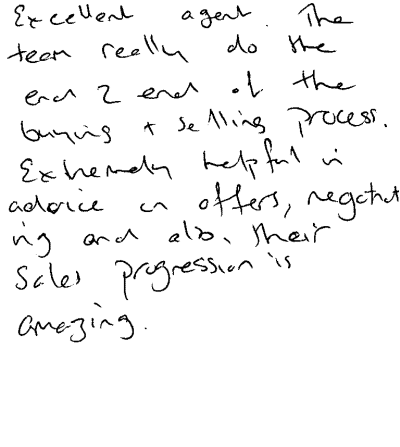 Excellent agent. The
team really do the
end 2 end of the
buying + selling process.
Extremely helpful in
advice on offers, negotiat
ing and also, their
Sales progression is
amazing.